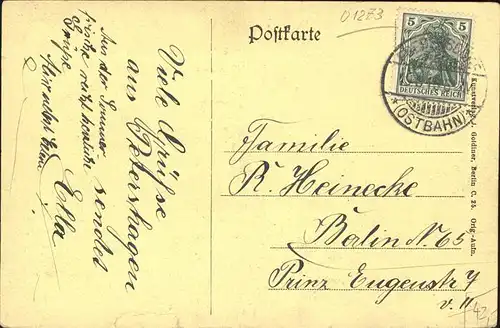 Postkarte
01283
5 5
DEUTSCHES REICH
*(OSTBAHN)
Viele Grüße
aus Petershagen
sendet
Ella
Aus der Sommer
frische recht herzliche
Grüße
Familie
R. Heinecke
Berlin N. 65
Prinz Eugenstr 7
v. II
Goldiner, Berlin C. 25. Orig.-Aufn.